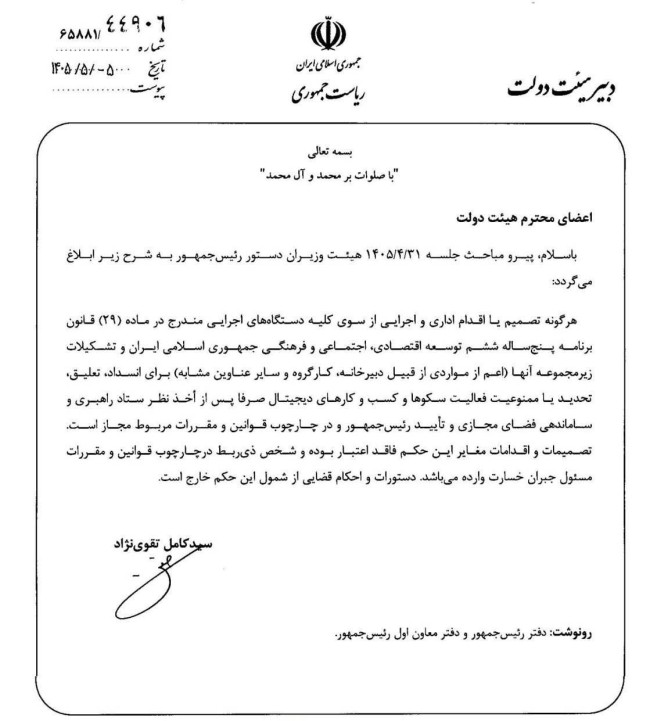 ۶۵۸۸۱/ ۴۴۹۰۶
شماره
تاریخ ۱۴۰۵/۵/۰۵
پیوست
جمهوری اسلامی ایران
ریاست جمهوری
دبیر هیئت دولت
بسمه تعالی
"با صلوات بر محمد و آل محمد"
اعضای محترم هیئت دولت
باسلام، پیرو مباحث جلسه ۱۴۰۵/۴/۳۱ هیئت وزیران دستور رئیس‌جمهور به شرح زیر ابلاغ
می‌گردد:
هرگونه تصمیم یا اقدام اداری و اجرایی از سوی کلیه دستگاه‌های اجرایی مندرج در ماده (۲۹) قانون
برنامه پنج‌ساله ششم توسعه اقتصادی، اجتماعی و فرهنگی جمهوری اسلامی ایران و تشکیلات
زیرمجموعه آنها (اعم از مواردی از قبیل دبیرخانه، کارگروه و سایر عناوین مشابه) برای انسداد، تعلیق،
تحدید یا ممنوعیت فعالیت سکوها و کسب و کارهای دیجیتال صرفا پس از أخذ نظر ستاد راهبری و
ساماندهی فضای مجازی و تأیید رئیس‌جمهور و در چارچوب قوانین و مقررات مربوط مجاز است.
تصمیمات و اقدامات مغایر این حکم فاقد اعتبار بوده و شخص ذی‌ربط درچارچوب قوانین و مقررات
مسئول جبران خسارت وارده می‌باشد. دستورات و احکام قضایی از شمول این حکم خارج است.
سیدکامل تقوی‌نژاد
رونوشت: دفتر رئیس‌جمهور و دفتر معاون اول رئیس‌جمهور.